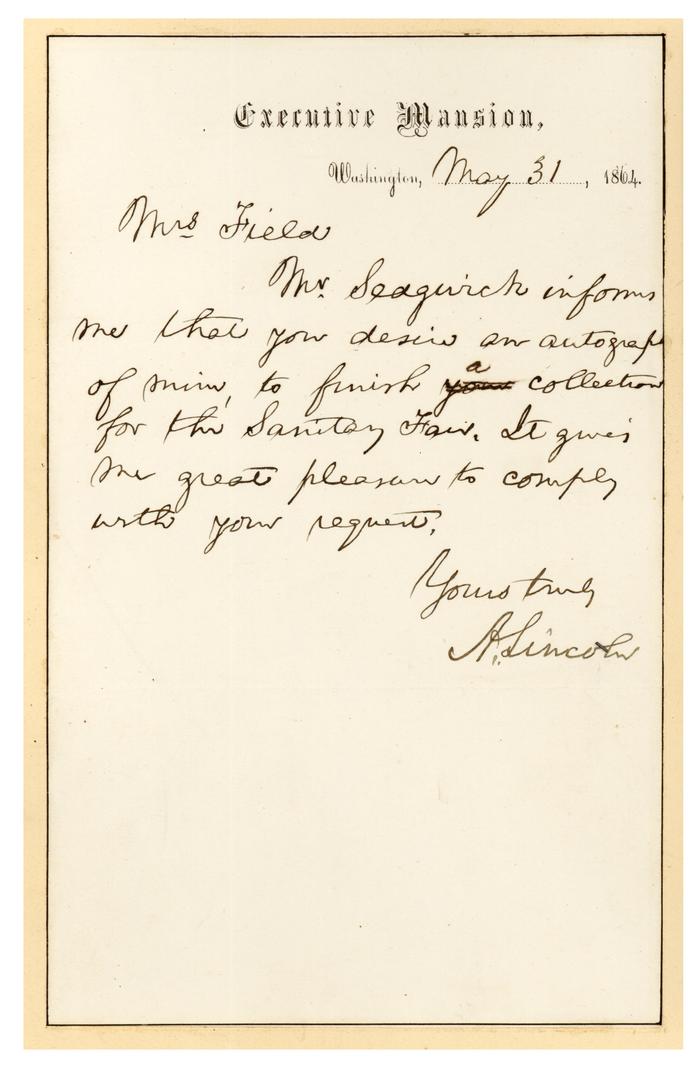 Executive Mansion,
Washington, May 31, 1864.
Mrs Field
Mr. Sedgwick informs
me that you desire an autograph
of mine, to finish a your collection
for the Sanitary Fair. It gives
me great pleasure to comply
with your request.
Yours truly
A. Lincoln